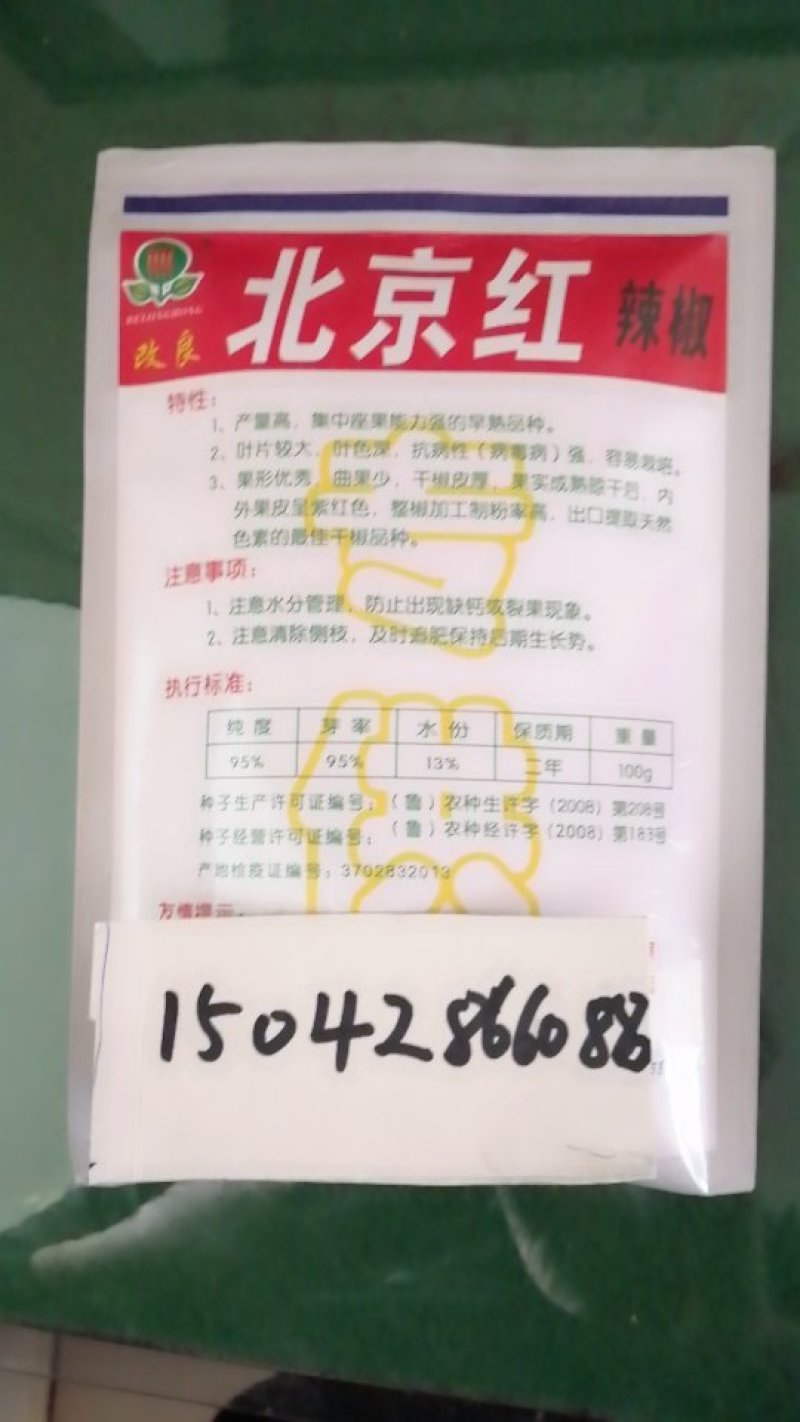 北京红 辣椒
BEIJINGHONG
改良
特性：
1、产量高，集中座果能力强的早熟品种。
2、叶片较大，叶色深，抗病性（病毒病）强，容易栽培。
3、果形优秀，曲果少，干椒皮厚，果实成熟晾干后，内
外果皮呈紫红色，整椒加工制粉率高，出口提取天然
色素的最佳干椒品种。
注意事项：
1、注意水分管理，防止出现缺钙或裂果现象。
2、注意清除侧枝，及时追肥保持后期生长势。
执行标准：
纯度 芽率 水份 保质期 重量
95% 95% 13% 二年 100g
种子生产许可证编号：（鲁）农种生许字（2008）第208号
种子经营许可证编号：（鲁）农种经许字（2008）第183号
产地检疫证编号：3702832013
友情提示：
15042866088